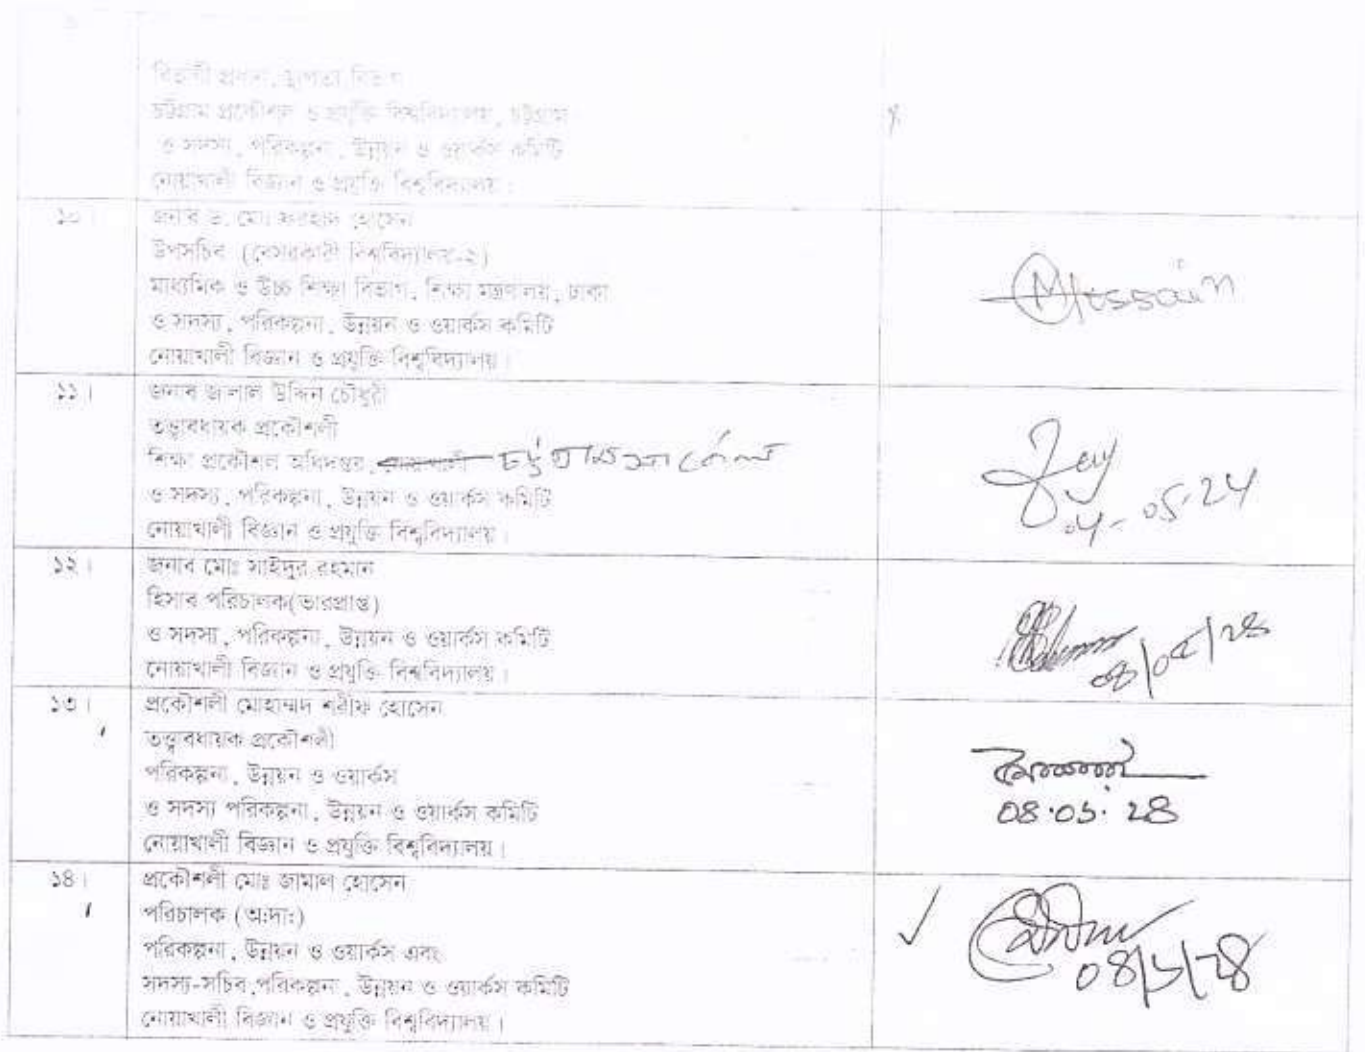 বিভাগীয় প্রধান, স্থাপত্য বিভাগ
চট্টগ্রাম প্রকৌশল ও প্রযুক্তি বিশ্ববিদ্যালয়, চট্টগ্রাম
ও সদস্য, পরিকল্পনা, উন্নয়ন ও ওয়ার্কস কমিটি
নোয়াখালী বিজ্ঞান ও প্রযুক্তি বিশ্ববিদ্যালয়।
১০। জনাব ড. মোঃ ফরহাদ হোসেন
উপসচিব (বেসরকারী বিশ্ববিদ্যালয়-২)
মাধ্যমিক ও উচ্চ শিক্ষা বিভাগ, শিক্ষা মন্ত্রণালয়, ঢাকা
ও সদস্য, পরিকল্পনা, উন্নয়ন ও ওয়ার্কস কমিটি
নোয়াখালী বিজ্ঞান ও প্রযুক্তি বিশ্ববিদ্যালয়।
MHossain
১১। জনাব জালাল উদ্দিন চৌধুরী
তত্ত্বাবধায়ক প্রকৌশলী
শিক্ষা প্রকৌশল অধিদপ্তর, নোয়াখালী চট্টগ্রাম সার্কেল
ও সদস্য, পরিকল্পনা, উন্নয়ন ও ওয়ার্কস কমিটি
নোয়াখালী বিজ্ঞান ও প্রযুক্তি বিশ্ববিদ্যালয়।
04-05-24
১২। জনাব মোঃ সাইদুর রহমান
হিসাব পরিচালক(ভারপ্রাপ্ত)
ও সদস্য, পরিকল্পনা, উন্নয়ন ও ওয়ার্কস কমিটি
নোয়াখালী বিজ্ঞান ও প্রযুক্তি বিশ্ববিদ্যালয়।
১৩। প্রকৌশলী মোহাম্মদ শরীফ হোসেন
তত্ত্বাবধায়ক প্রকৌশলী
পরিকল্পনা, উন্নয়ন ও ওয়ার্কস
ও সদস্য পরিকল্পনা, উন্নয়ন ও ওয়ার্কস কমিটি
নোয়াখালী বিজ্ঞান ও প্রযুক্তি বিশ্ববিদ্যালয়।
০৪.০৫.২৪
১৪। প্রকৌশলী মোঃ জামাল হোসেন
পরিচালক (অ:দা:)
পরিকল্পনা, উন্নয়ন ও ওয়ার্কস এবং
সদস্য-সচিব,পরিকল্পনা, উন্নয়ন ও ওয়ার্কস কমিটি
নোয়াখালী বিজ্ঞান ও প্রযুক্তি বিশ্ববিদ্যালয়।
০৪/৫/২৪